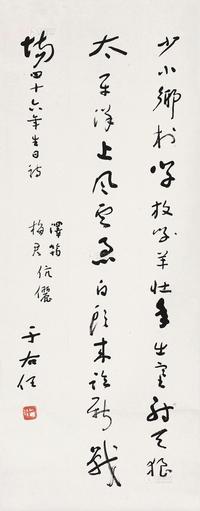 少小鄉村學放羊壯年出塞射天狼
太平洋上風雲急白頭來新戰
場四十六年生日詩
澤筠
梅君伉儷
于右任